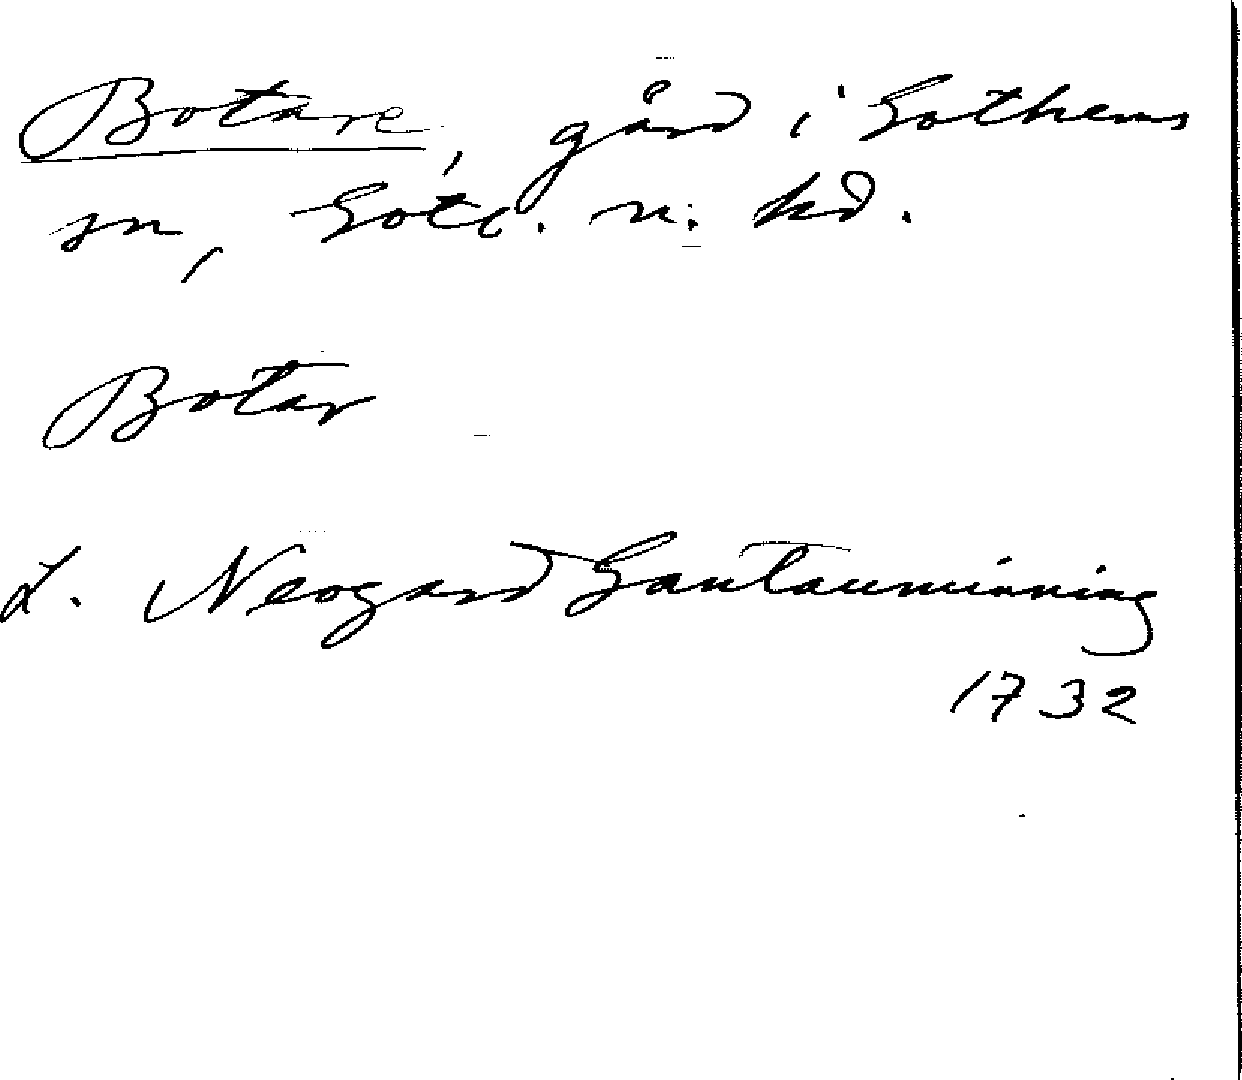 Botare, gård i Gothems
sn, Gotl. n. hd.
Botar
L. Neogard Gautauminning
1732